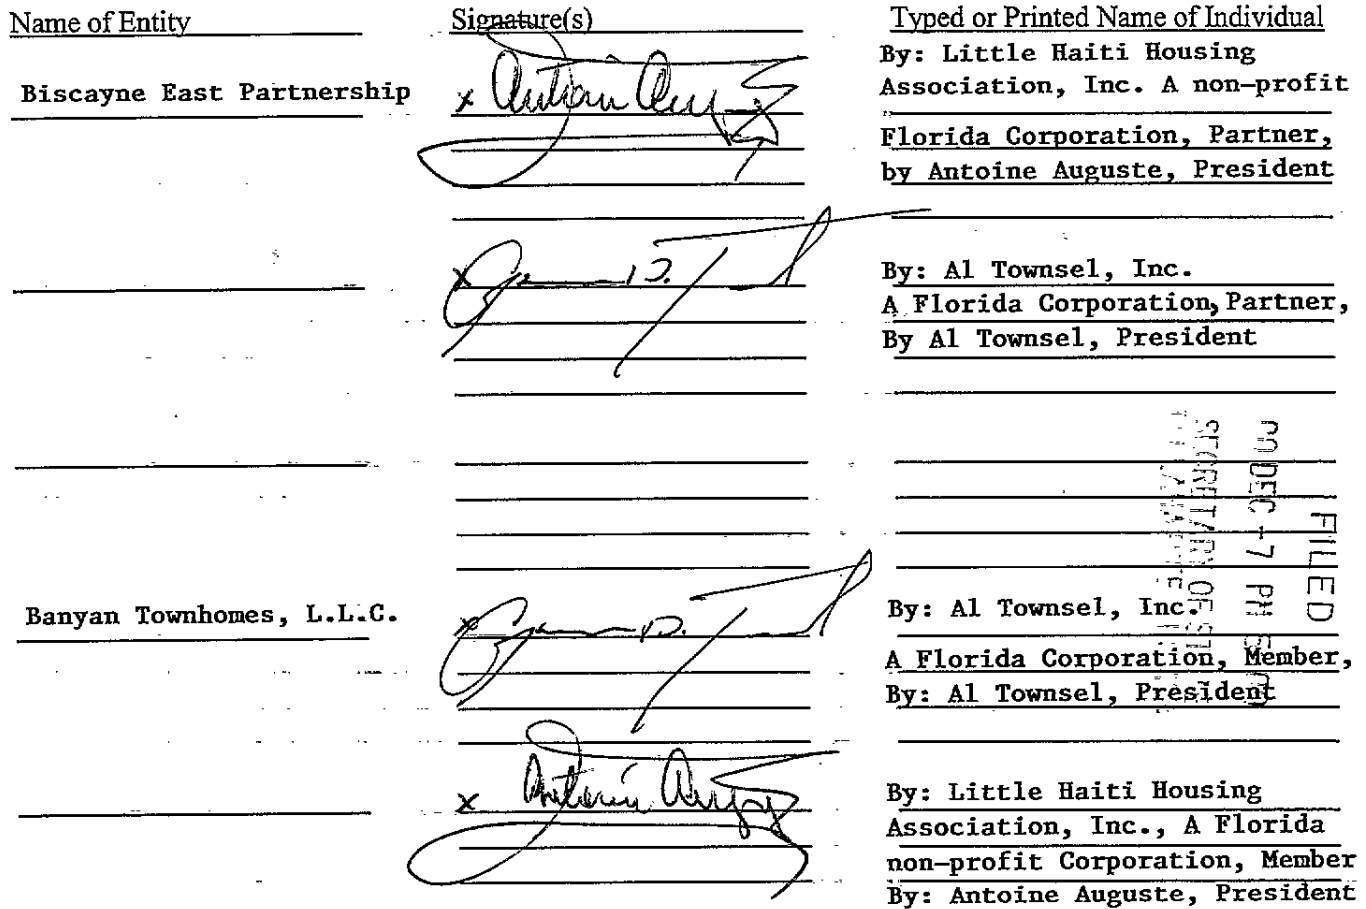 Name of Entity
Signature(s)
Typed or Printed Name of Individual
Biscayne East Partnership
x
By: Little Haiti Housing
Association, Inc. A non-profit
Florida Corporation, Partner,
by Antoine Auguste, President
x
By: Al Townsel, Inc.
A Florida Corporation, Partner,
By Al Townsel, President
FILED
DEC -7 PM
SECRETARY OF
Banyan Townhomes, L.L.C.
x
By: Al Townsel, Inc.
A Florida Corporation, Member,
By: Al Townsel, President
x
By: Little Haiti Housing
Association, Inc., A Florida
non-profit Corporation, Member
By: Antoine Auguste, President